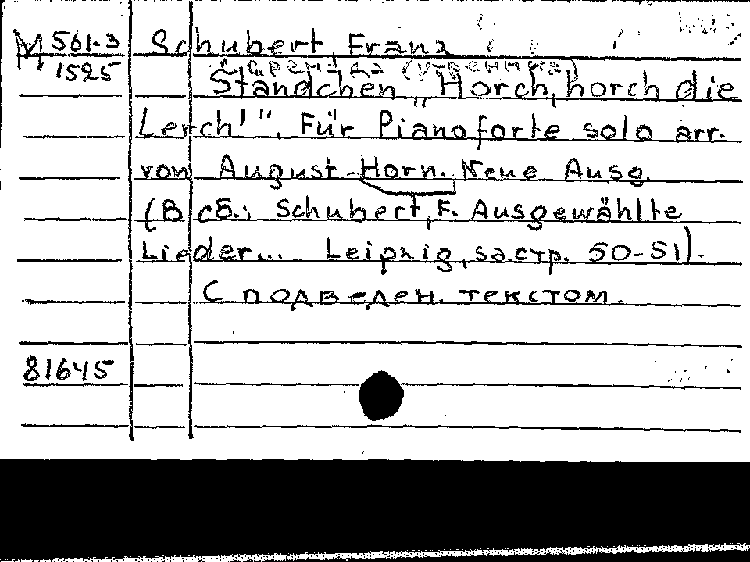 М 561-3 Schubert, Franz
1525 Серенада (утренняя)
Ständchen „Horch, horch die
Lerch'". Für Pianoforte solo arr.
von August Horn. Neue Ausg.
(В сб.: Schubert, F. Ausgewählte
Lieder... Leipzig, sa стр. 50-51).
С подведен. текстом.
81645